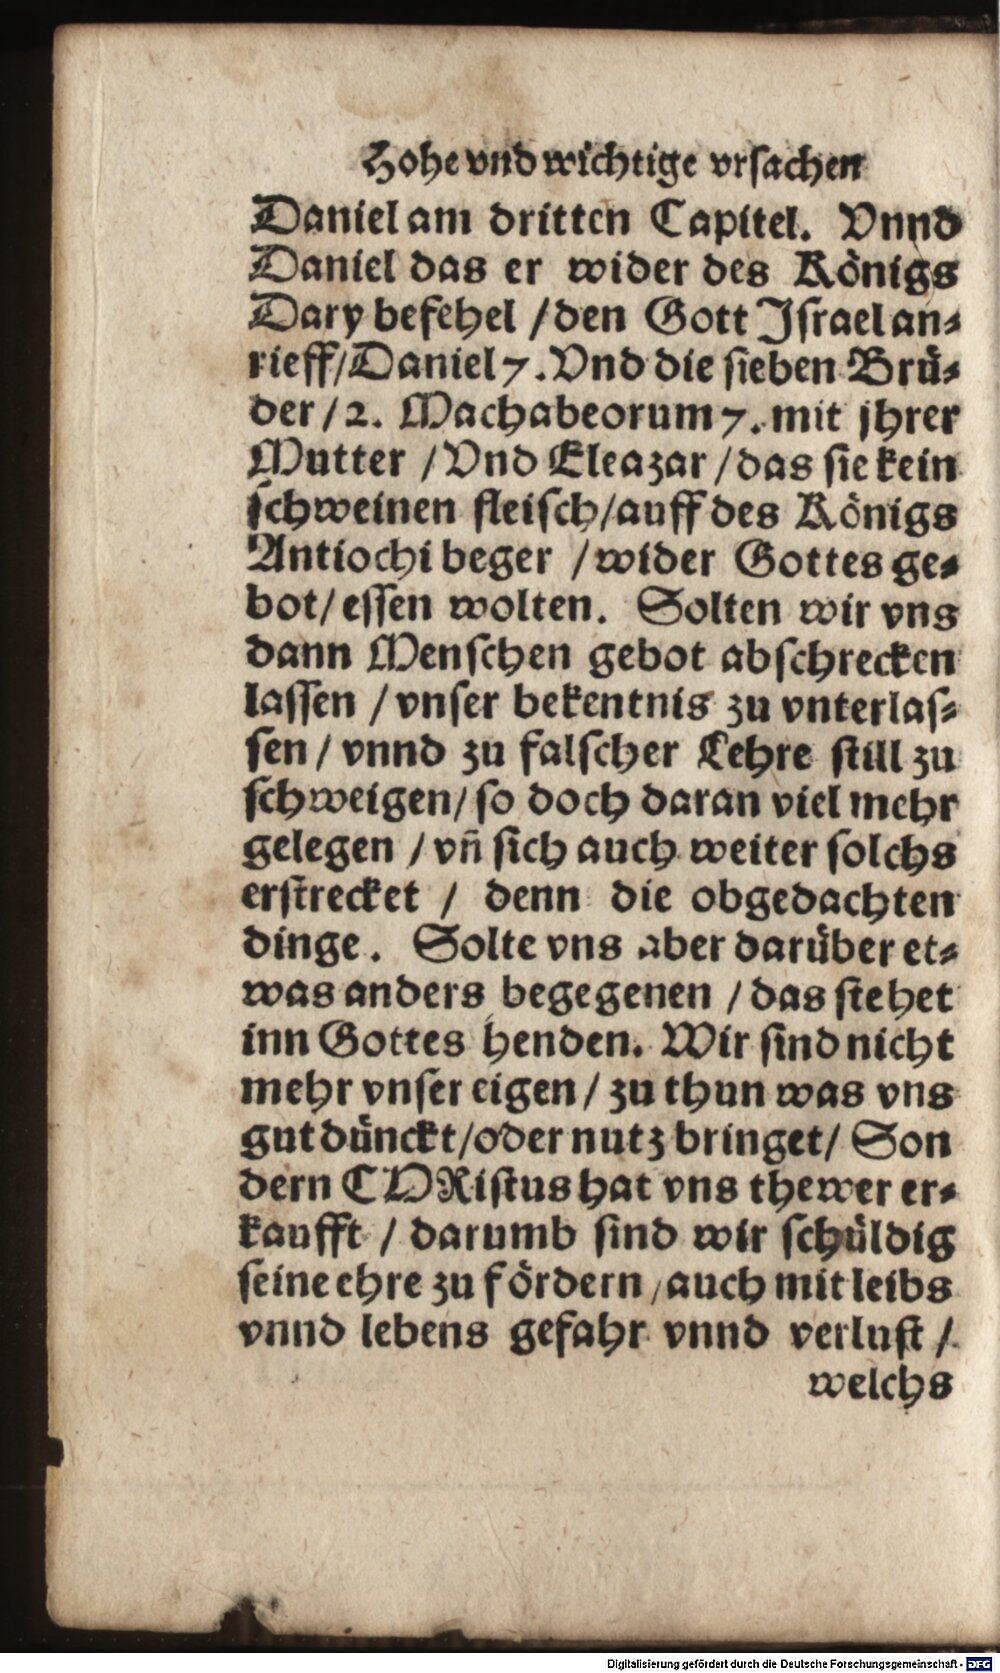 Hohe vnd wichtige vrsachen
Daniel am dritten Capitel. Vnnd
Daniel das er wider des Königs
Dary befehel / den Gott Jsrael an⸗
rieff / Daniel 7. Vnd die sieben Brü⸗
der / 2. Machabeorum 7. mit jhrer
Mutter / Vnd Eleazar / das sie kein
schweinen fleisch / auff des Königs
Antiochi beger / wider Gottes ge⸗
bot / essen wolten. Solten wir vns
dann Menschen gebot abschrecken
lassen / vnser bekentnis zu vnterlas⸗
sen / vnnd zu falscher Lehre still zu
schweigen / so doch daran viel mehr
gelegen / vn̄ sich auch weiter solchs
erstrecket / denn die obgedachten
dinge. Solte vns aber darüber et⸗
was anders begegenen / das stehet
inn Gottes henden. Wir sind nicht
mehr vnser eigen / zu thun was vns
gut dünckt / oder nutz bringet / Son
dern CHRistus hat vns thewer er⸗
kaufft / darumb sind wir schüldig
seine ehre zu fördern / auch mit leibs
vnnd lebens gefahr vnnd verlust /
welchs
Digitalisierung gefördert durch die Deutsche Forschungsgemeinschaft - DFG